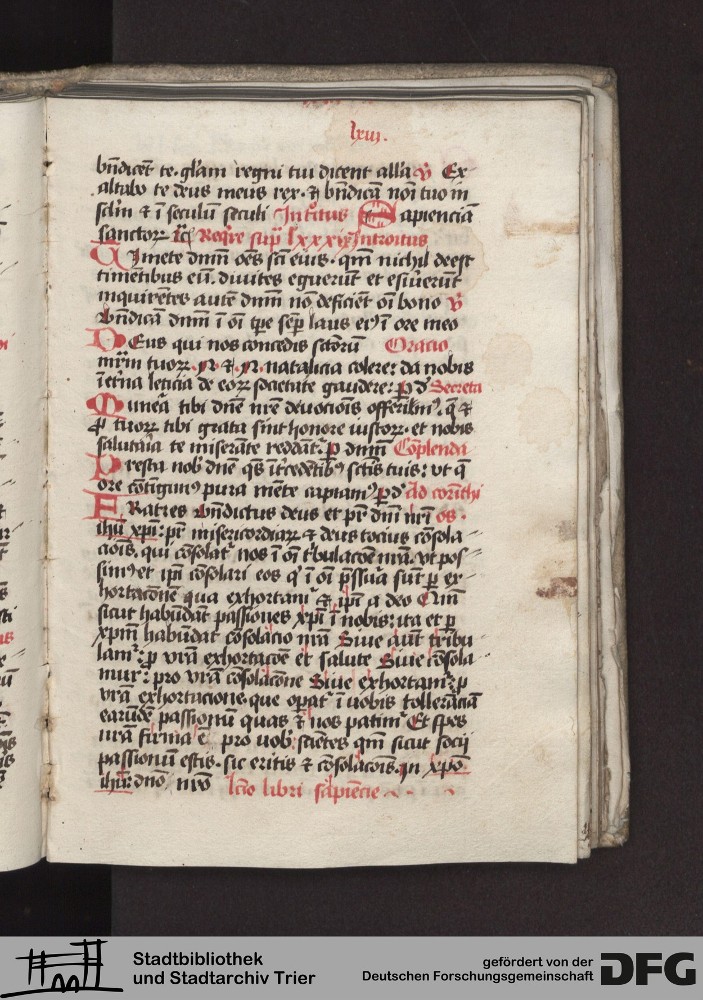 lxiij.
bn̄dicēt te. gl'iam regni tui dicent all'a ℣ Ex
altabo te deus meus rex. et bn̄dicā noī tuo in
sclm̄ et ī seculū seculi Introitus Sapienciā
sanctorꝝ Req̄re sup̄ lxxxix Introitus
Timete dnm̄ oēs scī eius. qm̄ nichil deest
timētibus eū. diuites eguerūt et esurierūt
inquirētes autē dnm̄ nō deficiēt oī bono ℣
Bn̄dicā dnm̄ ī oī tpe semp̄ laus eiꝰ ī ore meo
Deus qui nos concedis sctorū Oracio
mr̄m tuorꝝ. N. et. N. natalicia colere: da nobis
ī et'na leticia de eorꝝ societate gaudere: ꝑ d Secreta
Munera tibi dn̄e nr̄e deuocioīs offerimꝰ. q̄ et
ꝓ tuorꝝ tibi grata sint honore iustorꝝ. et nobis
salutaria te miserāte reddāt'. ꝑ dnm̄ Cōplenda
Presta nob' dn̄e qs̄ ītercedētibꝰ sctis tuis: vt q̄
ore cōtīgimꝰ pura mēte capiamꝰ. ꝑ d Ad corīthi
Fratres Bn̄dictus deus et pr̄ dnī nrī os.
ihū xp̄i: pr̄ misericordiarꝝ et deus tocius cōsola
cioīs. qui cōsolat' nos ī oī t'bulacōne nrā. vt pos
simꝰ et ip̄i cōsolari eos q' ī oī p̄ssura sūt ꝑ ex
hortacōnē qua exhortam' et ip̄i a deo Qm̄
sicut habūdāt passiones xp̄i ī nobis: ita et ꝑ
xp̄m habūdat cōsolacio nrā Siue aūt tribu
lam': ꝓ vrā exhortacōe et salute Siue cōsola
mur: pro vrā cōsolacōne Siue exhortam': ꝓ
vrā exhortacione. que operat' ī vobis tollerāciā
earūdē passionū quas et nos patim' Et spes
nrā firma ē pro vob' sciētes qm̄ sicut socij
passionū estis. sic eritis et cōsolacōis. ın xp̄o
ihū: dn̄o nr̄o lc̄io libri sapiēcie
Stadtbibliothek
und Stadtarchiv Trier
gefördert von der
Deutschen Forschungsgemeinschaft
DFG